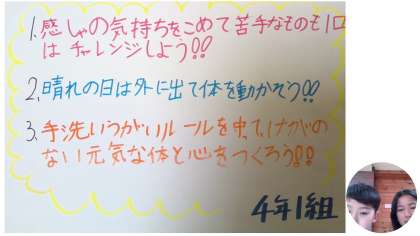 1. 感しゃの気持ちをこめて苦手なものも1口
は チャレンジしよう!!
2. 晴れの日は外に出て体を動かそう!!
3. 手洗いうがいルールを守て、けがの
ない元気な体と心をつくろう!!
4年1組